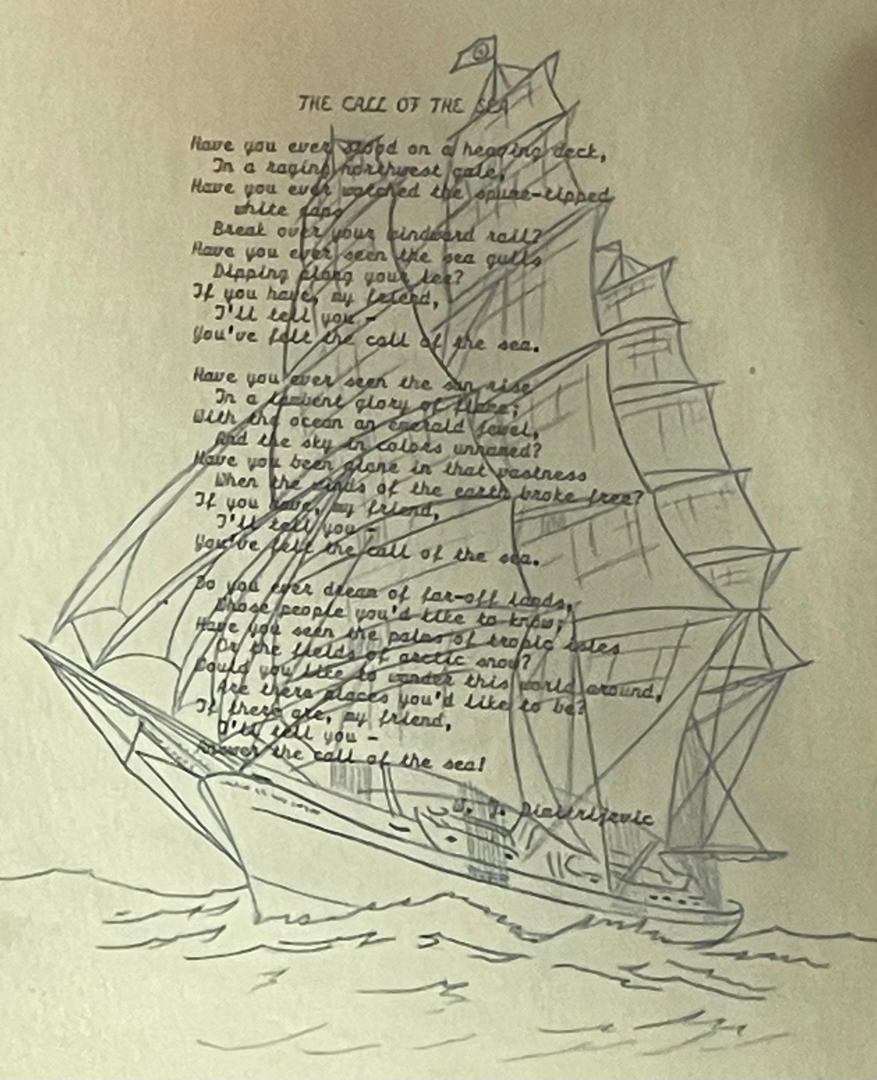 THE CALL OF THE SEA
Have you ever stood on a heaving deck,
In a raging northwest gale,
Have you ever watched the spume-tipped
white caps
Break over your windward rail?
Have you ever seen the sea gulls
Dipping along your lee?
If you have, my friend,
I'll tell you -
You've felt the call of the sea.
Have you ever seen the sun rise
In a lambent glory of flame;
With the ocean an emerald jewel,
And the sky in colors unnamed?
Have you been alone in that vastness
When the winds of the earth broke free?
If you have, my friend,
I'll tell you -
You've felt the call of the sea.
Do you ever dream of far-off lands,
Whose people you'd like to know;
Have you seen the palms of tropic isles
Or the fields of arctic snow?
Would you like to wander this world around,
Are there places you'd like to be?
If there are, my friend,
I'll tell you -
Answer the call of the sea!
J. Dimitrijevic